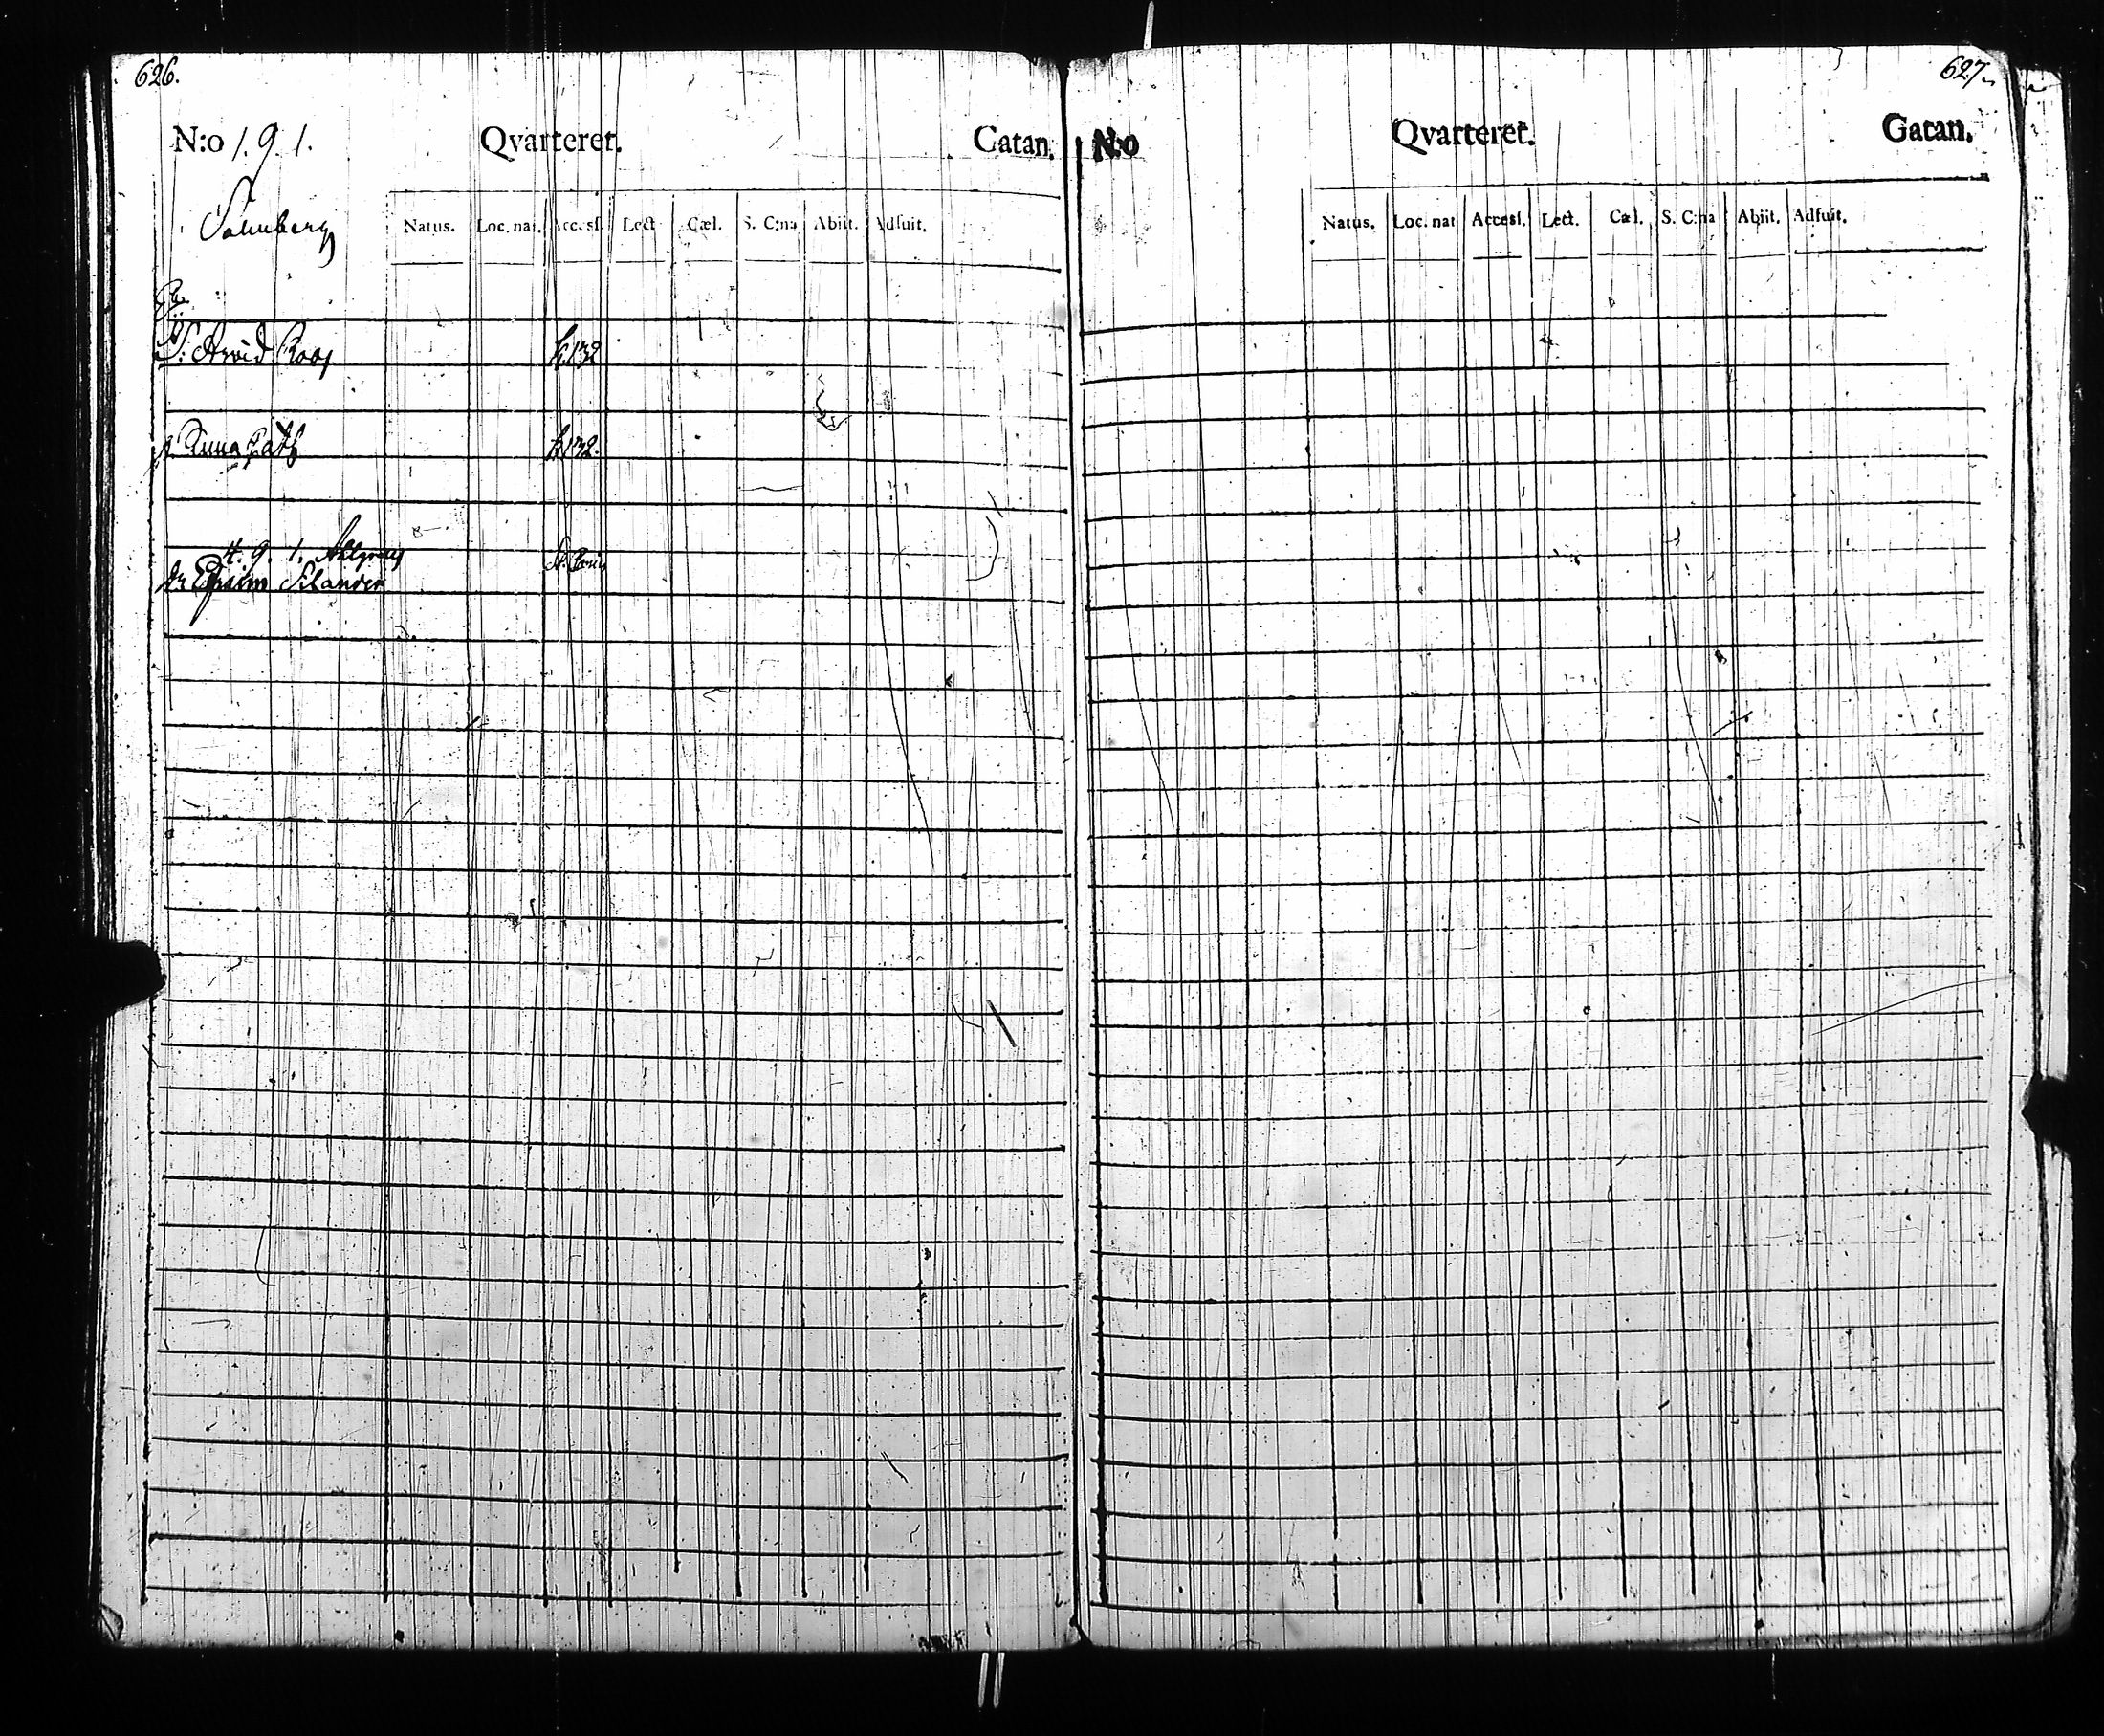 626.
N:o 1.9.1. Qvarteret. Gatan.
Natus. Loc. nat. Accesf. Lect. Cæl. S. C:na Abiit. Adfuit.
Arvid Roos k.132
Anna k.132.
4. 9. 1. Ahlgren
Silander
627.
N:o Qvarteret. Gatan.
Natus. Loc. nat Accesf. Lect. Cæl. S. C:na Abiit. Adfuit.